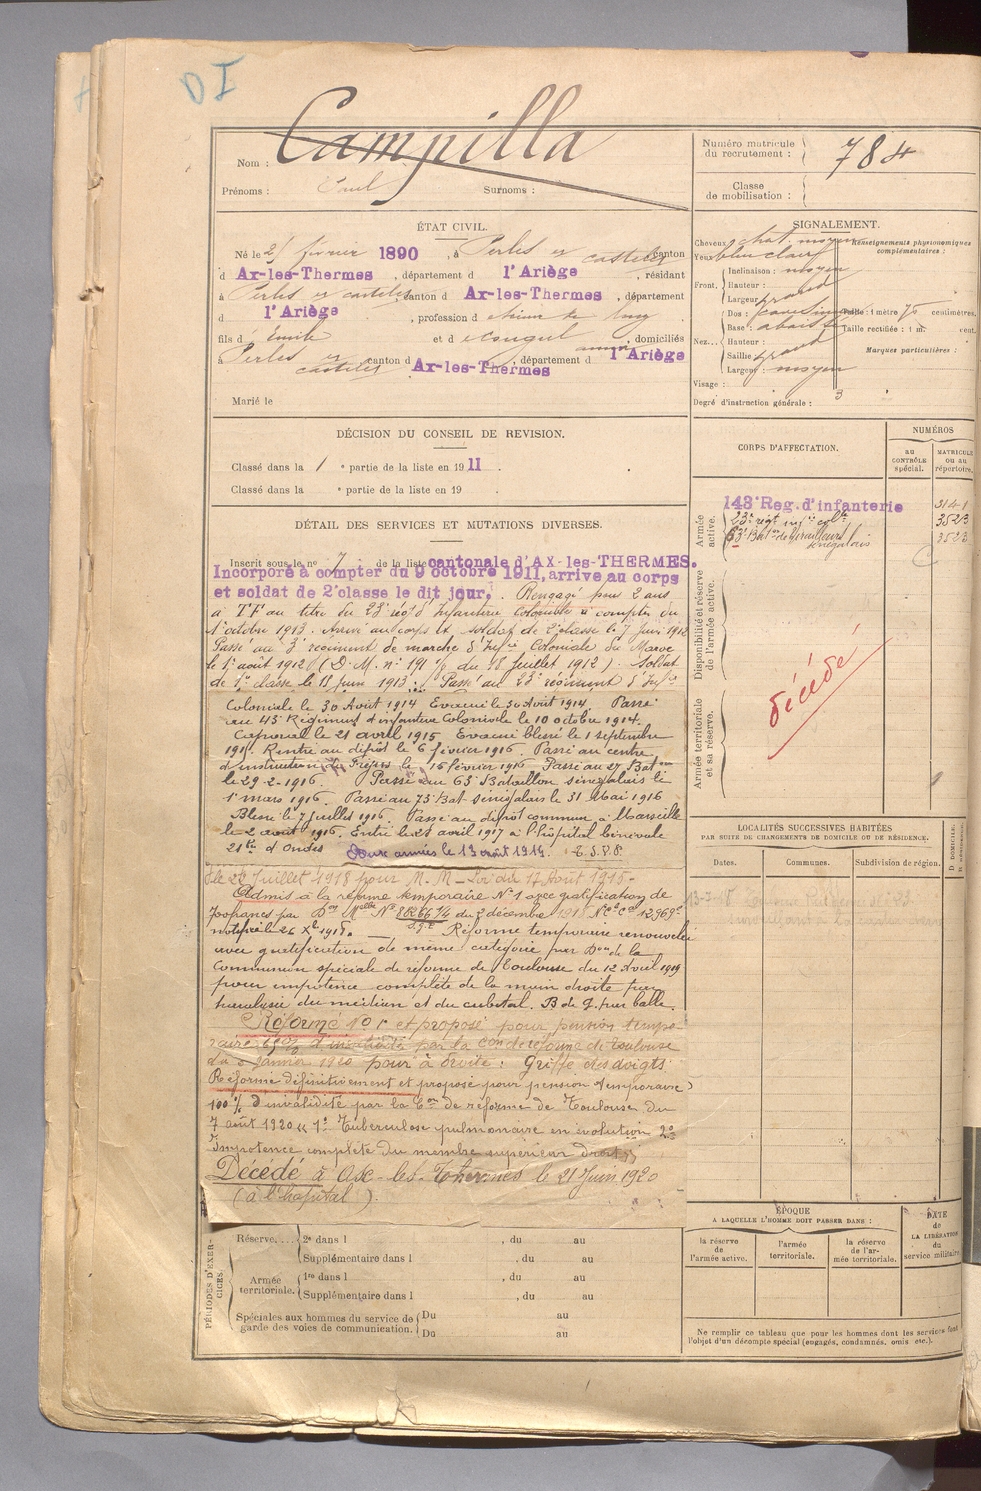 DI
Nom : Campilla
Prénoms : Paul Surnoms :
Numéro matricule du recrutement : 784
Classe de mobilisation :
ÉTAT CIVIL.
Né le 25 février 1890, à Perles et Castelet canton
d Ax-les-Thermes, département d l'Ariège, résidant
à Perles et Castelet canton d Ax-les-Thermes, département
d l'Ariège, profession d
fils d Emile et d , domiciliés
à Perles et Castelet canton d Ax-les-Thermes, département d l'Ariège
Marié le
SIGNALEMENT.
Cheveux chat. moyen
Yeux bleu clair
Front, Inclinaison : moyen
Hauteur :
Largeur grand
Nez... Dos :
Base : abaissé
Hauteur :
Saillie grand
Largeur : moyen
Visage :
Renseignements physionomiques complémentaires :
Taille : 1 mètre 70 centimètres.
Taille rectifiée : 1 m. cent.
Marques particulières :
Degré d'instruction générale : 3
DÉCISION DU CONSEIL DE REVISION.
Classé dans la 1 e partie de la liste en 1911.
Classé dans la e partie de la liste en 19 .
DÉTAIL DES SERVICES ET MUTATIONS DIVERSES.
Inscrit sous le no 7 de la liste cantonale d'AX-les-THERMES.
Incorporé à compter du 9 octobre 1911, arrive au corps
et soldat de 2e classe le dit jour. Rengagé pour 2 ans
au titre du 23e régt d'Infanterie Coloniale à compter du
1er octobre 1913. Arrivé au corps et soldat de 2e classe le 7 juin 1912
Passé au 3e régiment de marche d'Infie Coloniale du Maroc
le 1er août 1912 (D. M. no 191 du 18 juillet 1912). Soldat
de 1re classe le 18 juin 1913. Passé au 23e régiment d'Infie
Coloniale le 30 Août 1914 Evacué le 30 Août 1914. Passé
au 43e Régiment d'infanterie Coloniale le 10 octobre 1914.
Caporal le 21 avril 1915 Evacué blessé le 1 septembre
191 . Rentré au dépôt le 6 février 1916. Passé au centre
d'instruction de Fréjus le 16 février 1916 Passé au 27 Baton
le 29-2-1916 Passé au 63e Bataillon sénégalais le
1er mars 1916. Passé au 73e Bat sénégalais le 31 Mai 1916
Blessé le 7 juillet 1916. Passé au dépôt commun à Marseille
le 2 août 1916. Entré le 21 avril 1917 à l'hôpital bénévole
21 bis d' Aux armées le 13 août 1914. T.S.V.P.
le 22 juillet 1918 pour M. M - Loi du 17 Août 1915-
Admis à la réforme temporaire No 1 avec gratification de
700 francs par Don Mlle No 88266 1/4 du 2 décembre 1918 No Co 12969
notifié le 26 Xbre 1918. Réforme temporaire renouvelée
avec gratification de même catégorie par Don de la
Commission spéciale de réforme de Toulouse du 12 Avril 1919
pour impotence complète de la main droite par
paralysie du médian et du cubital. B de g. par balle.
Réformé No 1 et proposé pour pension tempo
raire 65% d'invalidité par la Con de réforme de Toulouse
du 6 Janvier 1920 pour à droite : Griffe des doigts.
Réformé définitivement et proposé pour pension (temporaire)
100% d'invalidité par la Con de réforme de Toulouse du
7 août 1920 " 1o Tuberculose pulmonaire en évolution 2o
Impotence complète du membre supérieur droit "
Décédé à Ax-les-Thermes le 21 Juin 1920
(à l'hôpital).
CORPS D'AFFECTATION.
NUMÉROS
au CONTRÔLE spécial.
MATRICULE ou au répertoire.
Armée active.
143e Reg. d'infanterie 3141
23e régt infie colle 3523
63e Baton de Tirailleurs sénégalais 3523
Disponibilité et réserve de l'armée active.
Armée territoriale et sa réserve.
Décédé
LOCALITÉS SUCCESSIVES HABITÉES
PAR SUITE DE CHANGEMENTS DE DOMICILE OU DE RÉSIDENCE.
Dates. Communes. Subdivision de région.
ÉPOQUE
A LAQUELLE L'HOMME DOIT PASSER DANS :
la réserve de l'armée active.
l'armée territoriale.
la réserve de l'armée territoriale.
DATE de LA LIBÉRATION du service militaire.
Ne remplir ce tableau que pour les hommes dont les services font
l'objet d'un décompte spécial (engagés, condamnés, omis etc.).
PÉRIODES D'EXERCICES.
Réserve.... 2e dans l , du au
Supplémentaire dans l , du au
Armée territoriale. 1re dans l , du au
Supplémentaire dans l , du au
Spéciales aux hommes du service de garde des voies de communication. Du au
Du au